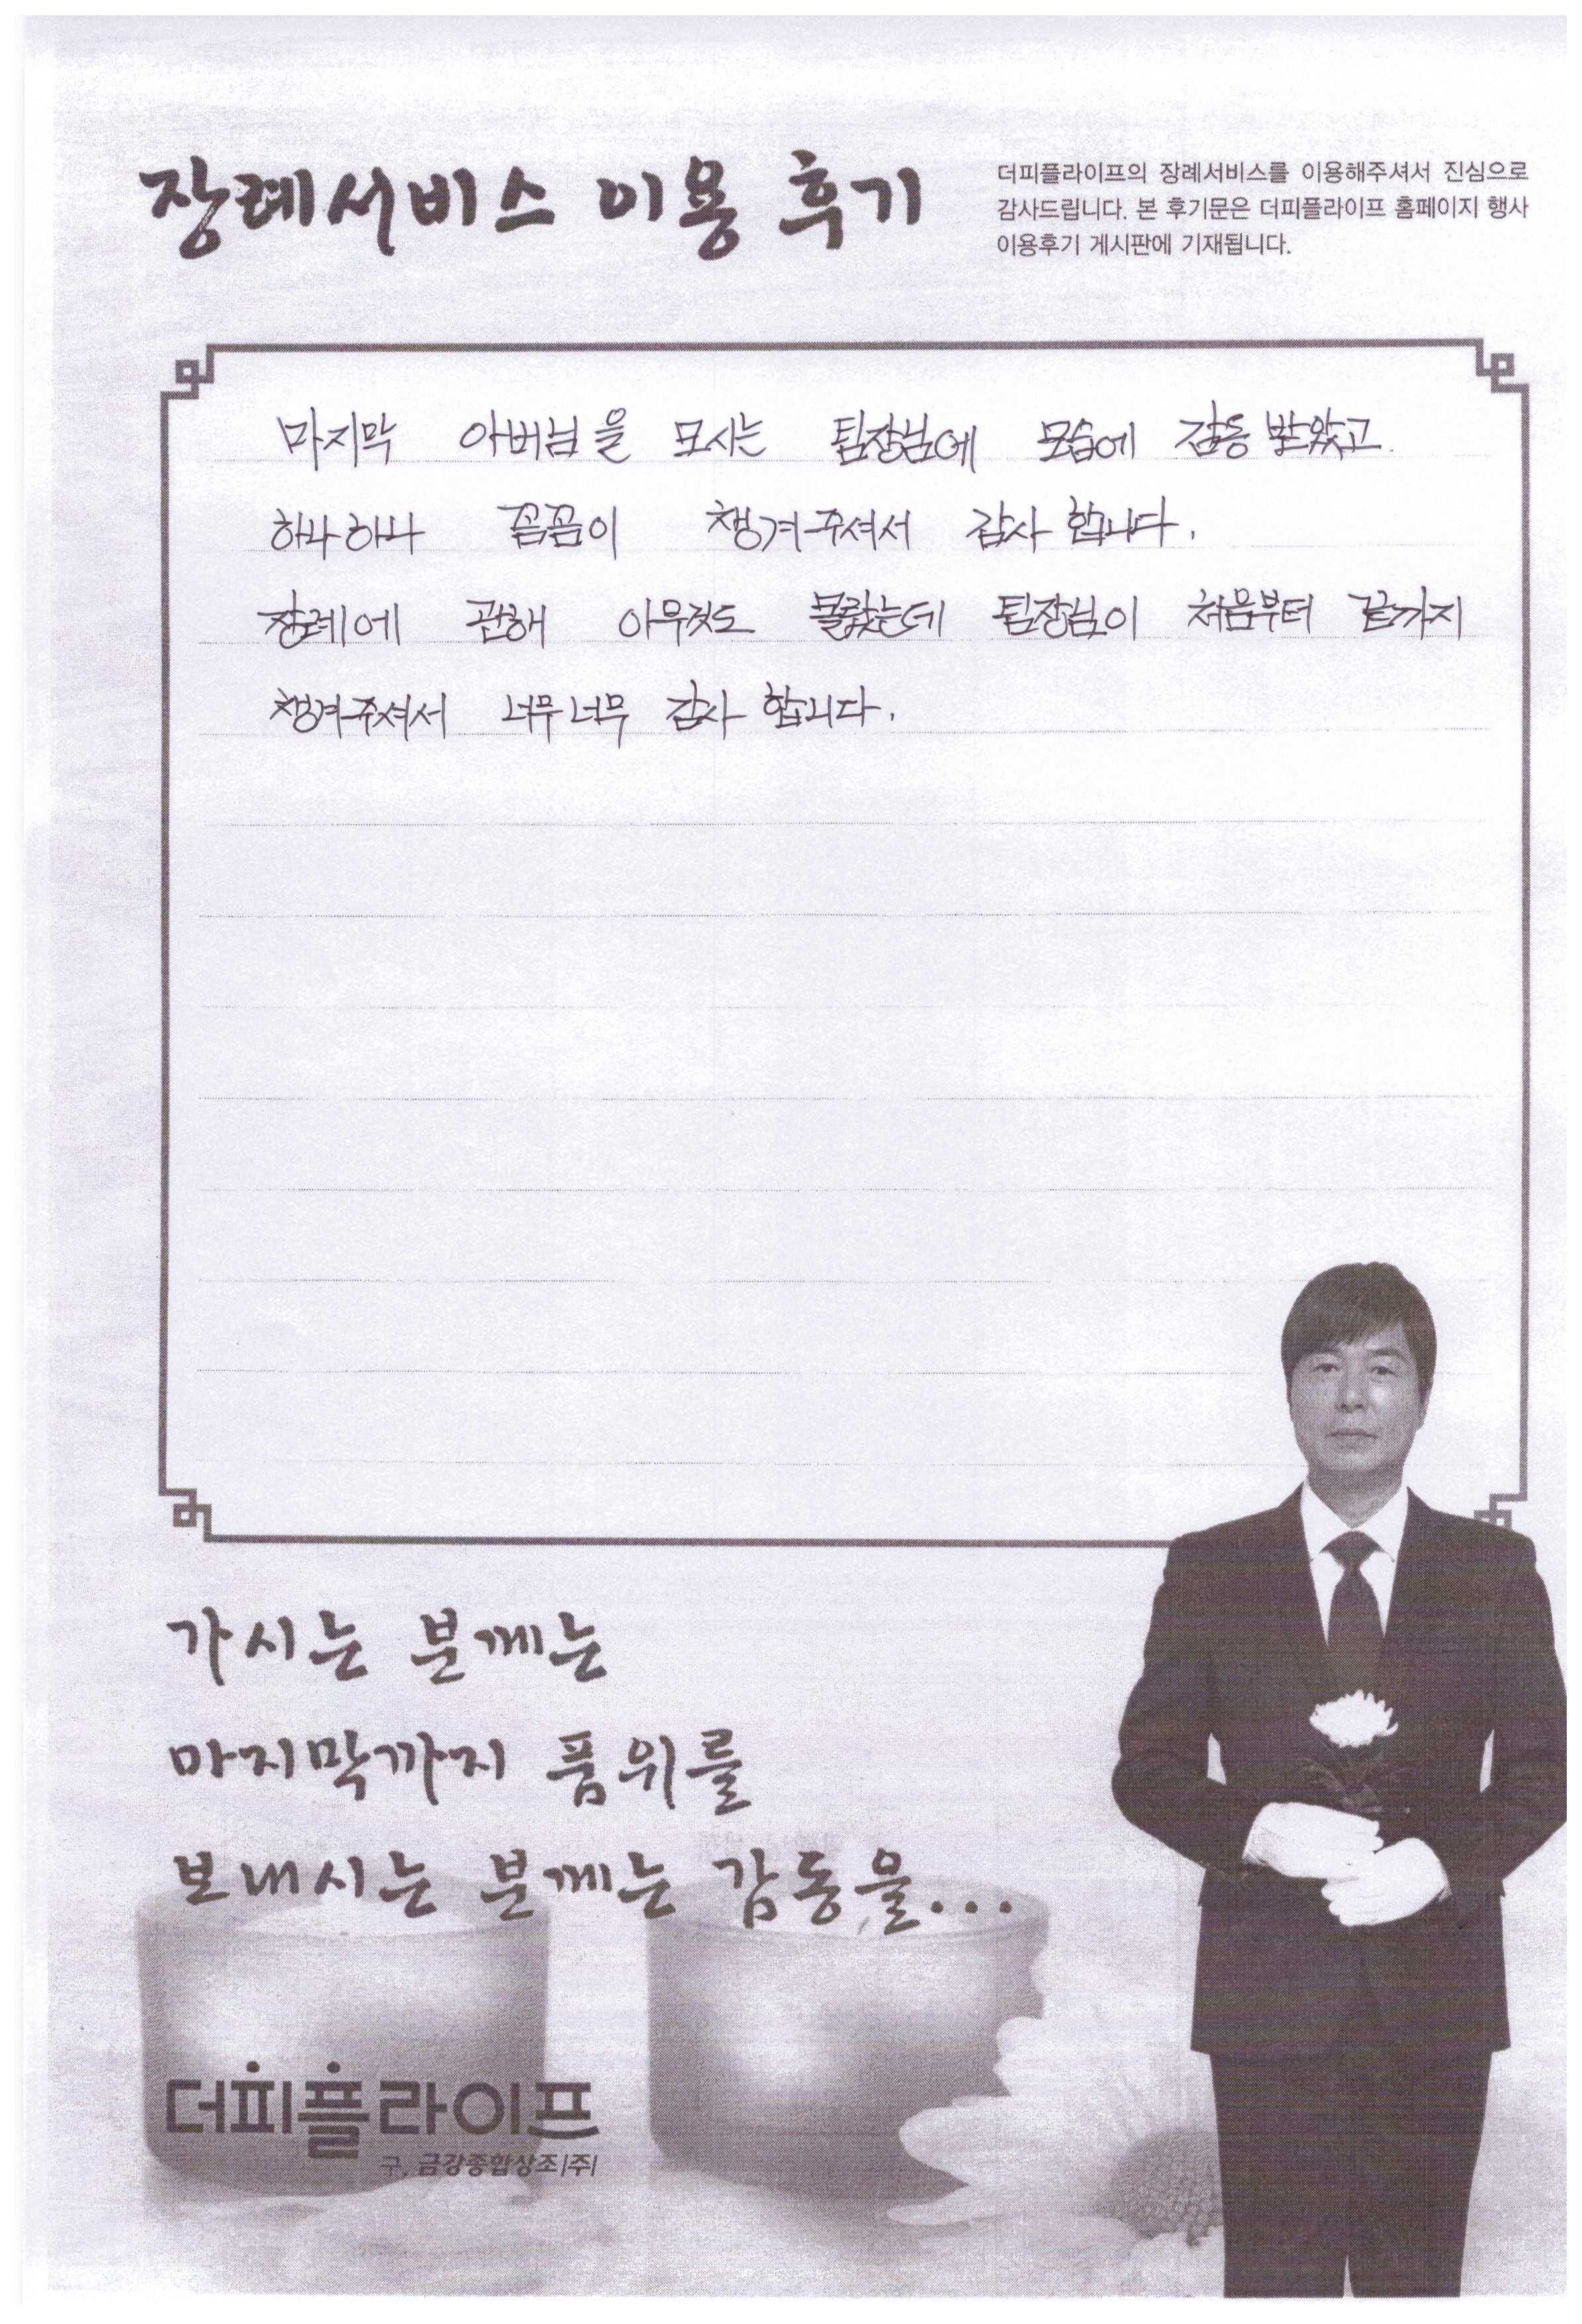 장례서비스 이용 후기
더피플라이프의 장례서비스를 이용해주셔서 진심으로
감사드립니다. 본 후기문은 더피플라이프 홈페이지 행사
이용후기 게시판에 기재됩니다.
마지막 아버님을 모시는 팀장님에 모습에 감동 받았고.
하나하나 꼼꼼이 챙겨주셔서 감사 합니다.
장례에 관해 아무것도 몰랐는데 팀장님이 처음부터 끝까지
챙겨주셔서 너무너무 감사 합니다.
가시는 분께는
마지막까지 품위를
보내시는 분께는 감동을...
더피플라이프
구, 금강종합상조(주)